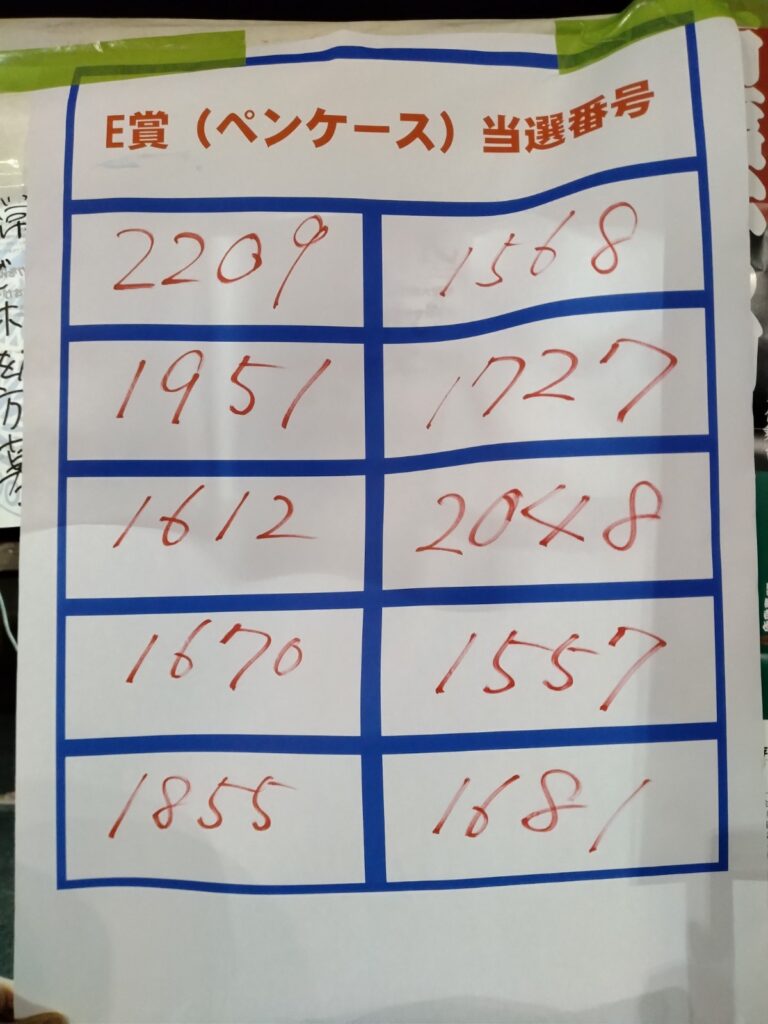 E賞（ペンケース）当選番号
2209 1568
1951 1727
1612 2048
1670 1557
1855 1681